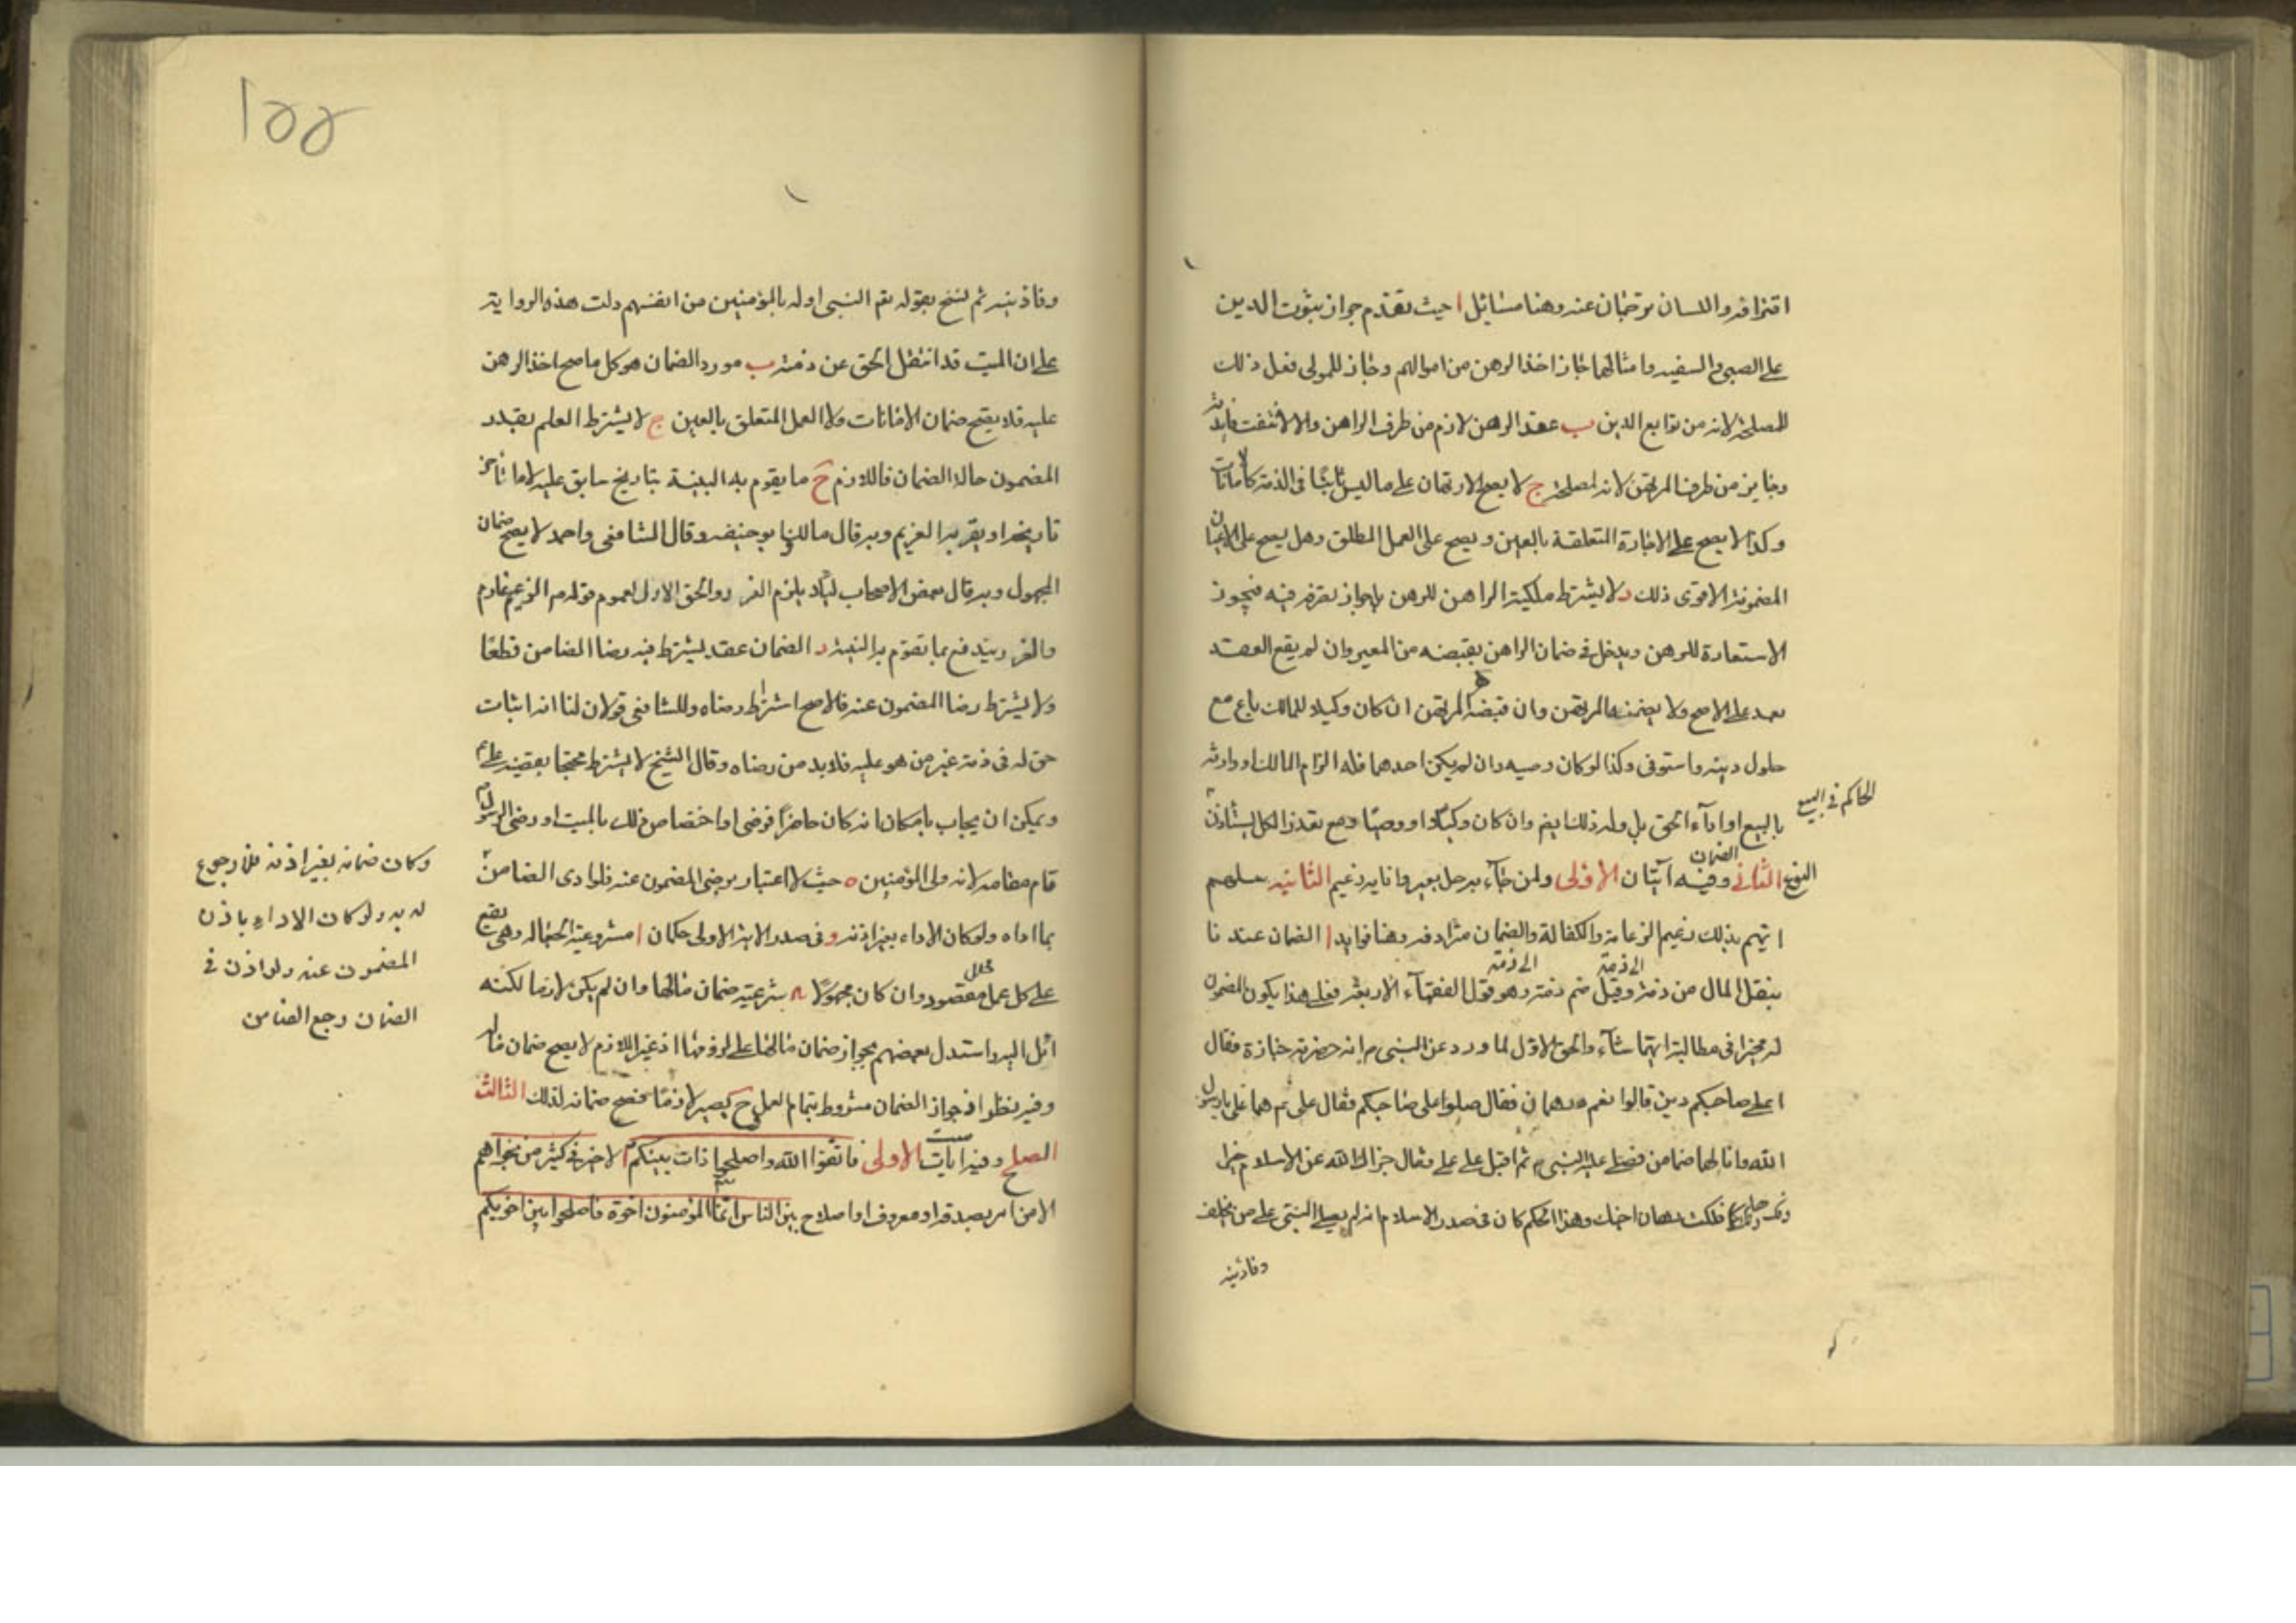 اقترافه واللسان ترجمان عنه وهنا مسائل ا حيث تقدم جواز ثبوت الدين
على الصبى والسفيه وامثالهما جاز اخذ الرهن من اموالهم وجاز للمولى فعل ذلك
للمصلحة لانه من توابع الدين ب عقد الرهن لازم من طرف الراهن والا لانتفت فايدته
وجايز من طرف المرتهن لانه لمصلحته ج لا يصح الارتهان على ما ليس ثابتا فى الذمة كالامانات
وكذا لا يصح على الاجارة المتعلقة بالعين ويصح على العمل المطلق وهل يصح على الاعيان
المضمونة الاقوى ذلك د لا يشترط ملكية الراهن للرهن بل جواز تصرفه فيه فيجوز
الاستعارة للرهن ويدخل فى ضمان الراهن بقبضه من المعير وان لم يقع العقد
بعد على الاصح ولا يضمنه المرتهن وان قبضه ه المرتهن ان كان وكيلا للمالك باع مع
حلول دينه واستوفى وكذا لو كان وصيه وان لم يكن احدهما فله الزام المالك او وارثه
بالبيع او اداء الحق بل وله ذلك ايضا وان كان وكيلا او وصيا ومع تعذر الكل يستاذن
الحاكم فى البيع
النوع الثانى الضمان وفيه آيتان الاولى ولمن جاء به حمل بعير وانا به زعيم الثانيه سلهم
ايهم بذلك زعيم الزعامة والكفالة والضمان مترادفه وهنا فوايد ا الضمان عندنا
ينقل المال من ذمة الى ذمة وقيل ضم ذمة الى ذمة وهو قول الفقهاء الاربعة فعلى هذا يكون المضمون
له مخيرا فى مطالبة ايهما شاء والحق الاول لما ورد عن النبى م انه حضرته جنازة فقال
اعلى صاحبكم دين قالوا نعم درهمان فقال صلوا على صاحبكم فقال على ع هما على يا رسول
الله وانا لهما ضامن فصلى عليه النبى ثم اقبل على على فقال جزاك الله عن الاسلام خيرا
وفك رهانك كما فككت رهان اخيك وهذا الحكم كان فى صدر الاسلام انه لم يصل النبى على من يخلف
وفا دينه
١٥٥
وفا دينه ثم نسخ بقوله تع النبى اولى بالمؤمنين من انفسهم دلت هذه الرواية
على ان الميت قد انتقل الحق عن ذمته ب مورد الضمان هو كل ما صح اخذ الرهن
عليه فلا يصح ضمان الامانات ولا العمل المتعلق بالعين ج لا يشترط العلم بقدر
المضمون حالة الضمان فاللازم ح ما يقوم به البينة بتاريخ سابق عليه لا ما تاخر
تاريخه او يقر به الغريم وبه قال مالك وابو حنيفه وقال الشافعى واحمد لا يصح ضمان
المجهول وبه قال بعض الاصحاب لئلا يلزم الغرر والحق الاول لعموم قوله م الزعيم غارم
والغرر يندفع بما تقوم به البينة د الضمان عقد يشترط فيه رضا الضامن قطعا
ولا يشترط رضا المضمون عنه فالاصح اشتراط رضاه وللشافعى قولان لنا انه اثبات
حق له فى ذمة غير من هو عليه فلا بد من رضاه وقال الشيخ لا يشترط محتجا بقضية على ع
ويمكن ان يجاب بامكان انه كان حاضرا فرضى او اختصاص ذلك بالميت او رضى الرسول
قام مقامه لانه ولى المؤمنين ه حيث لا اعتبار برضى المضمون عنه فلو ادى الضامن
وكان ضمانه بغير اذنه فلا رجوع
له به ولو كان الاداء باذن
المضمون عنه ولو اذن فى
الضمان رجع الضامن
بما اداه ولو كان الاداء بغير اذنه و فى صدر الاية الاولى حكمان ا مشروعية الجعاله وهى تقع
على كل عمل محلل مقصود وان كان مجهولا ب شرعية ضمان مالها وان لم يكن لازما لكنه
آئل اليه واستدل بعضهم بجواز ضمان مالها على لزومها اذ غير اللازم لا يصح ضمان ماله
وفيه نظر اذ جواز الضمان مشروط بتمام العمل وح يصير لازما فصح ضمانه لذلك الثالث
الصلح وفيه ايات ست الاولى فاتقوا الله واصلحوا ذات بينكم ا لا خير فى كثير من نجواهم
الا من امر بصدقة او معروف او اصلاح بين الناس انما المؤمنون اخوة فاصلحوا بين اخويكم